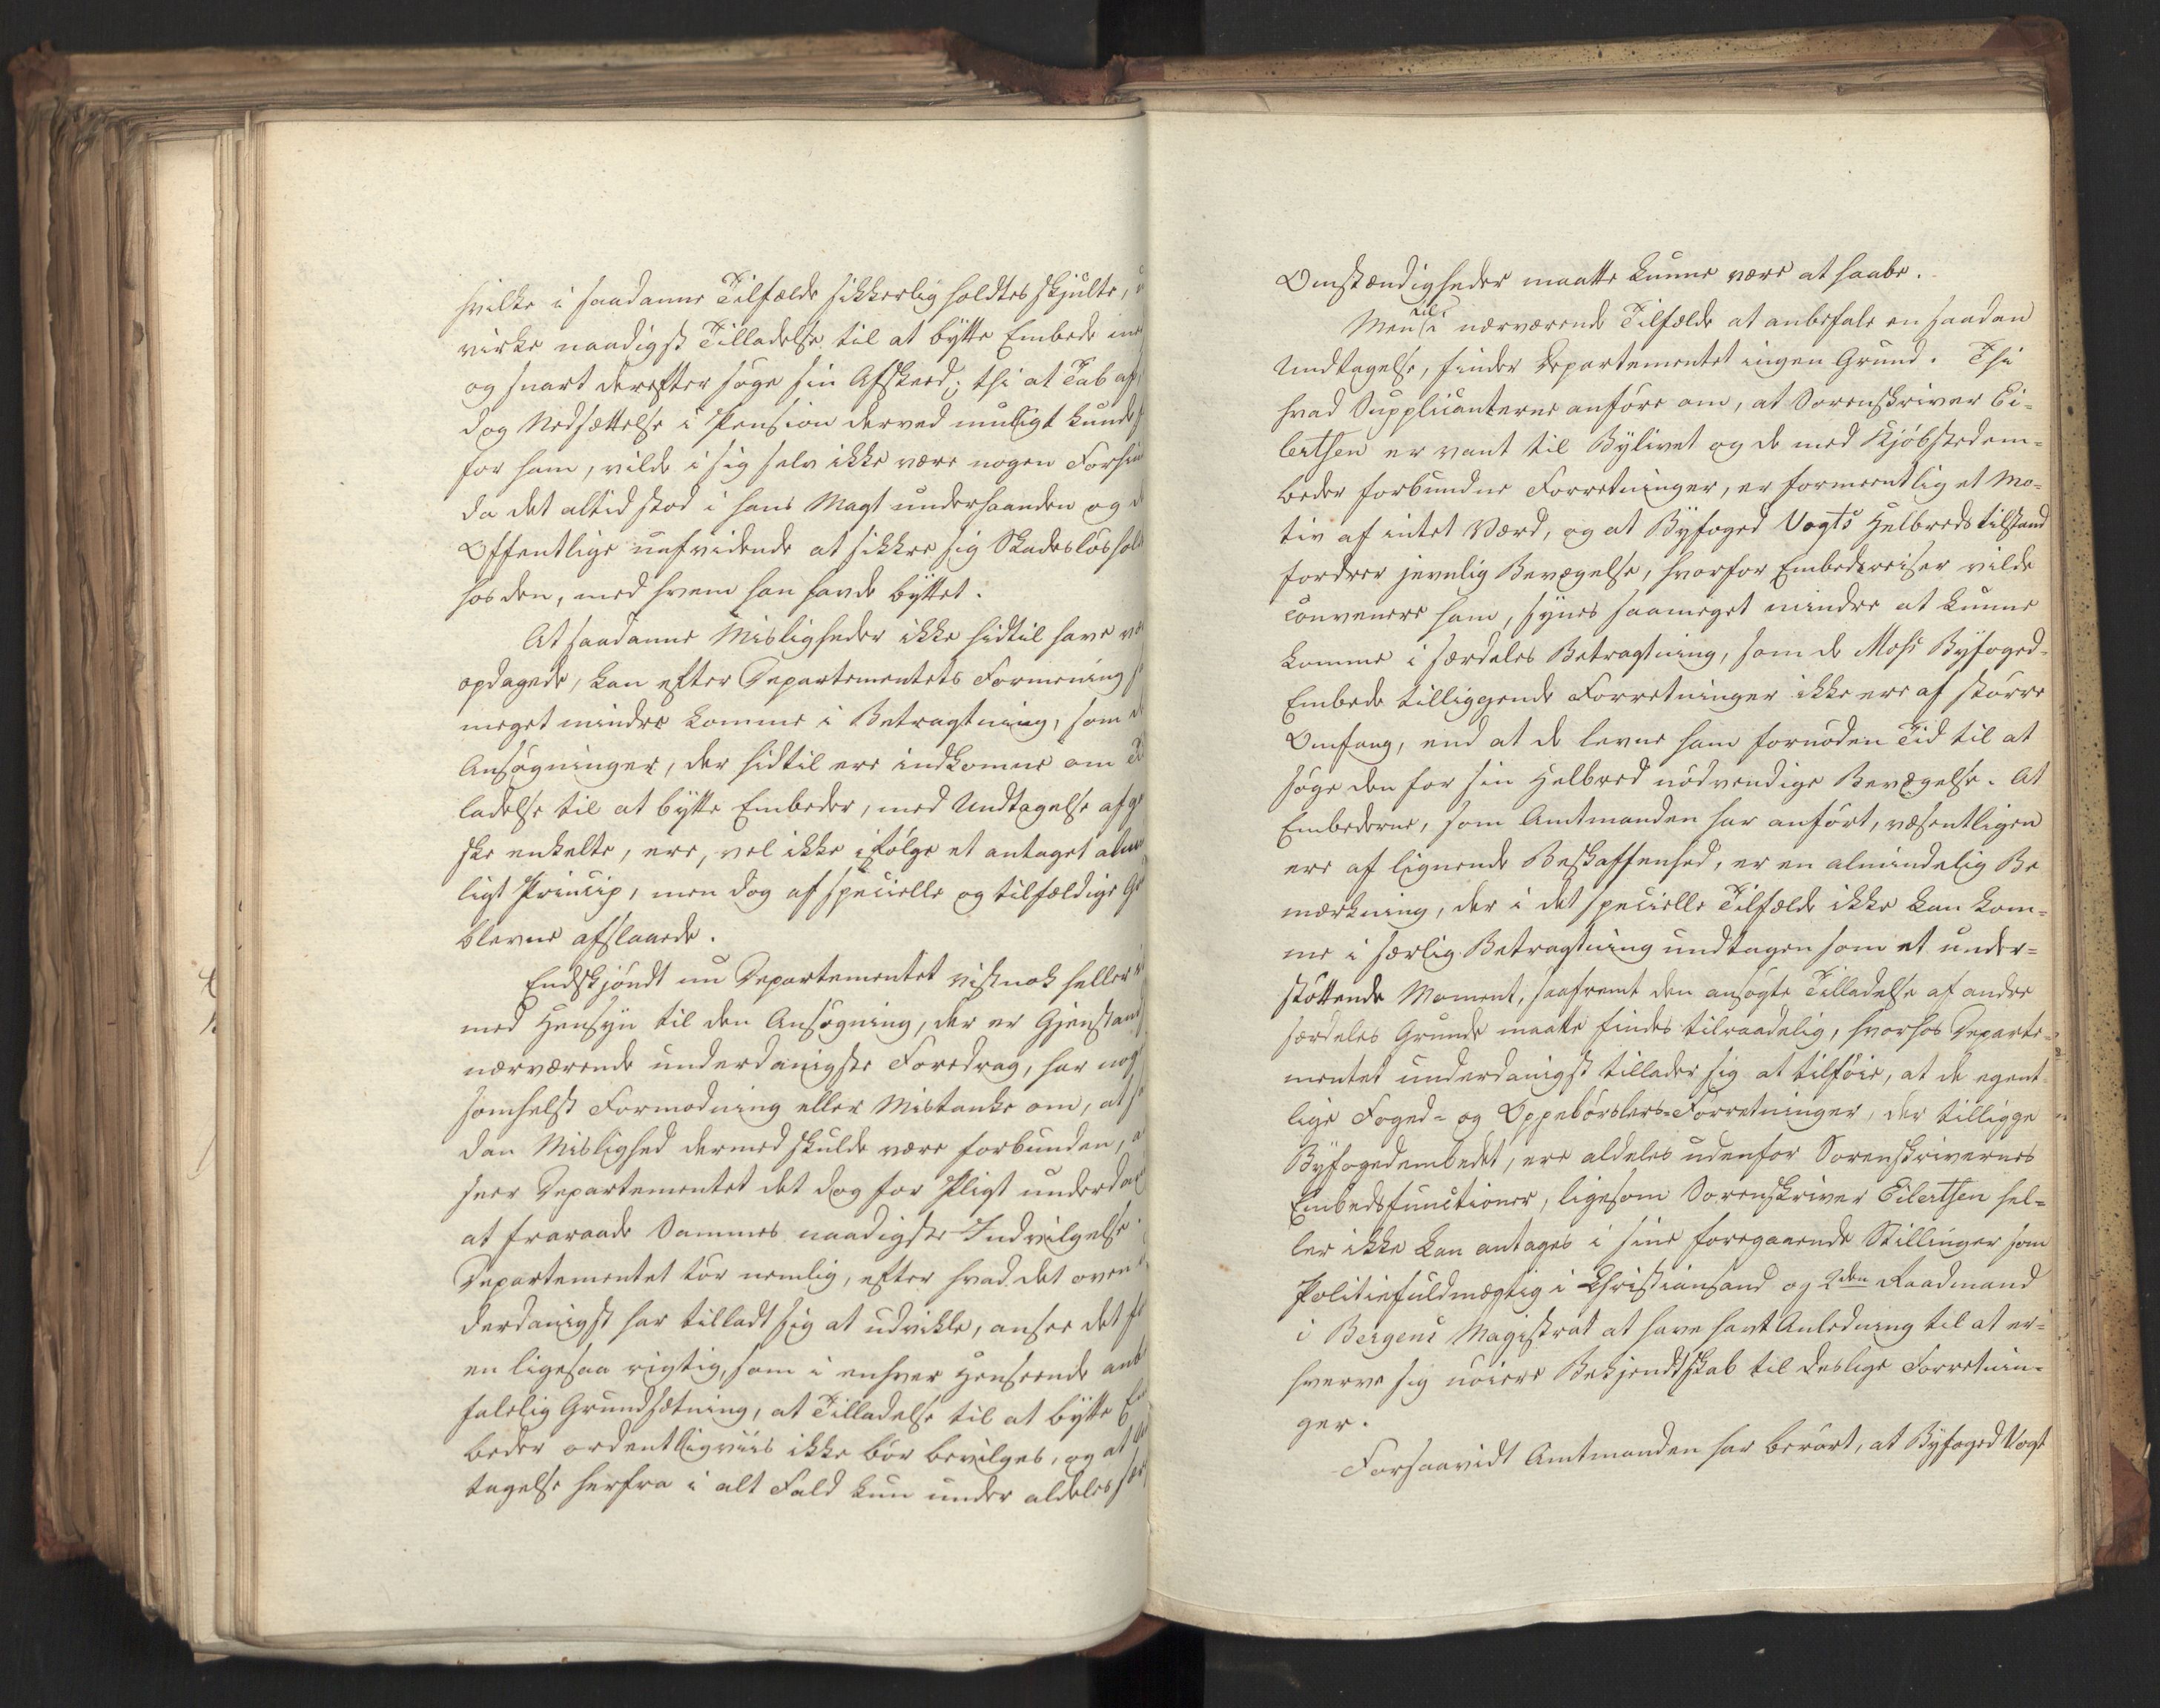 hvilke i saadanne Tilfælde sikkerlig holdtes skjulte,
virke naadigst Tilladelse til at bytte Embede
og snart derefter søge sin Afskeed; thi at Tab af
dog Nedsættelse i Pension derved muligt kunde
for ham, vilde i sig selv ikke være nogen
da det altid stod i hans Magt underhaanden og
Offentlige uafvidende at sikkre sig
hos den, med hvem han havde byttet.
At saadanne Misligheder ikke hidtil have
opdagede, kan efter Departementets Formening
meget mindre komme i Betragtning, som
Ansøgninger, der hidtil ere indkomne om
ladelse til at bytte Embeder, med Undtagelse af
ske enkelte, ere, vel ikke ifølge et antaget
ligt Princip, men dog af specielle og tilfældige
blevne afslaaede.
Endskjøndt nu Departementet vistnok heller
med Hensyn til den Ansøgning, der er
nærværende underdanigste Foredrag, har
somhelst Formodning eller Mistanke om, at
dan Mislighed dermed skulde være forbunden,
seer Departementet det dog for Pligt
at fraraade Sammes naadigste Indvilgelse.
Departementet tør nemlig, efter hvad det
derdanigst har tilladt sig at udvikle, ansee det
en ligesaa rigtig, som i enhver Henseende
falelig Grundsætning, at Tilladelse til at bytte
beder ordentligviis ikke bør bevilges, og at
tagelse herfra i alt Fald kun under aldeles
Omstændigheder maatte kunne være at haabe.
Men til i nærværende Tilfælde at anbefale en saadan
Undtagelse, finder Departementet ingen Grund. Thi
hvad Supplicanterne anføre om, at Sorenskriver Ei-
lertsen er vant til Bylivet og de med Kjøbstedem-
beder forbundne Forretninger, er formeentlig et Mo-
tiv af intet Værd, og at Byfoged Vogts Helbredstilstand
fordrer jevnlig Bevægelse, hvorfor Embedsreiser vilde
convenere ham, synes saameget mindre at kunne
komme i særdeles Betragtning, som de Moss Byfoged-
Embede tilliggende Forretninger ikke ere af større
Omfang, end at de levne ham fornøden Tid til at
søge den for sin Helbred nødvendige Bevægelse. At
Embederne, som Amtmanden har anført, væsentligen
ere af lignende Beskaffenhed, er en almindelig Be
mærkning, der i det specielle Tilfælde ikke kan kom-
me i særlig Betragtning undtagen som et under-
støttende Moment, saafremt den ansøgte Tilladelse af andre
særdeles Grunde maatte findes tilraadelig, hvorhos Departe-
mentet underdanigst tillader sig at tilføie, at de egent-
lige Foged- og Oppebørsels-Forretninger, der tilligge
Byfogedembedet, ere aldeles udenfor Sorenskrivernes
Embedsfunctioner, ligesom Sorenskriver Eilertsen hel-
ler ikke kan antages i sine foregaaende Stillinger som
Politiefuldmægtig i Christiansand og 2den Raadmand
i Bergens Magistrat at have havt Anledning til at er-
hverve sig nøiere Bekjendtskab til deslige Forretnin-
ger.
Forsaavidt Amtmanden har berørt, at Byfoged Vogt